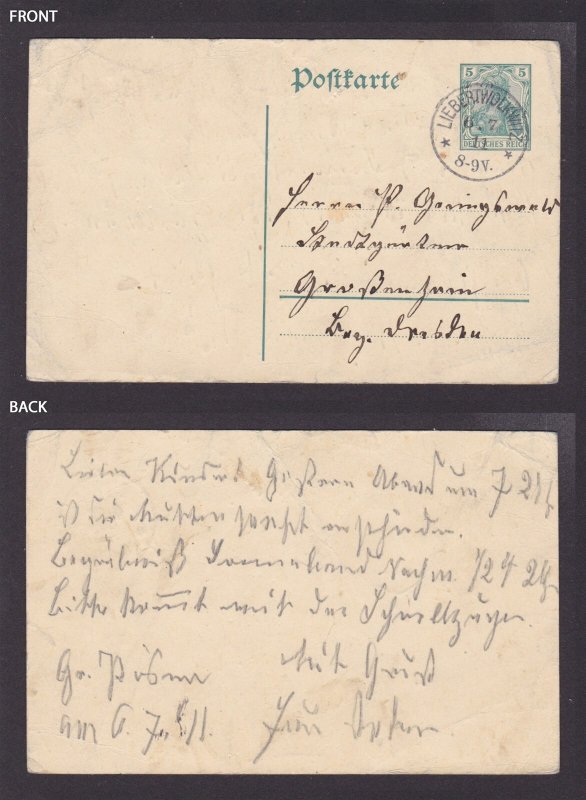 FRONT
Postkarte
5 5
DEUTSCHES REICH
LIEBERTWOLKWITZ
6. 7
11
8-9V.
Herrn P. Geringswald
Stadtgärtner
Großenhain
Bez. Dresden
BACK
Liebe Kinder Gestern Abend um 7 Uhr
ist die Mutter sanft
Begräbniß Sonnabend Nachm. 1/2 4 Uhr
Bitte kommt mit der
Gr. Pösna Mit Gruß
am 6. 7. 11. Euer Vater